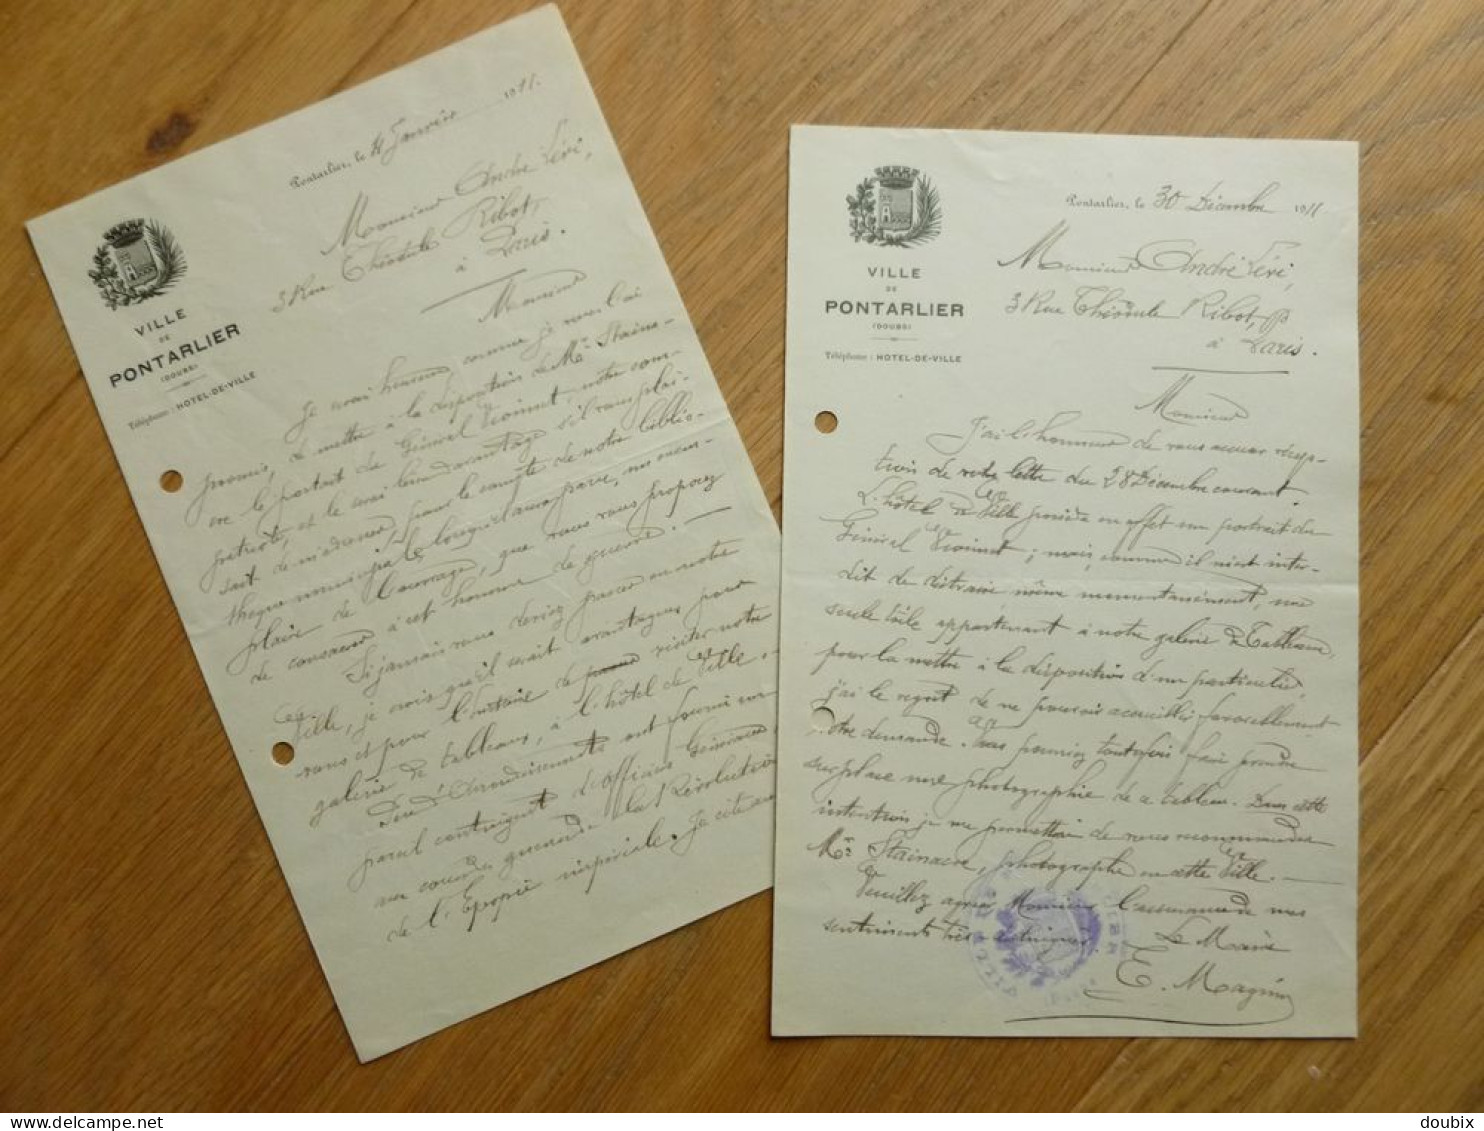 Pontarlier, le 4 Janvier 1911.
Monsieur André Lévi,
3 Rue Théodule Ribot,
à Paris.
VILLE
DE
PONTARLIER
(DOUBS)
Téléphone : HOTEL-DE-VILLE
Monsieur
Je serai heureux, comme je vous l'ai
promis, de mettre à la disposition de Mr Staina-
cre le portrait du Général Vionnet, notre com-
patriote, et le serai davantage s'il vous plai-
sait de m'adresser, pour le compte de notre biblio-
thèque municipale, lorsqu'il aura paru, un exem-
plaire de l'ouvrage, que vous vous proposez
de consacrer à cet homme de guerre. —
Si jamais vous deviez passer en notre
Ville, je crois qu'il serait avantageux pour
vous et pour l'histoire de visiter notre
galerie de tableaux, à l'hôtel de Ville. —
Peu d'Arrondissements ont fourni un
pareil contingent d'officiers Généraux,
au cours des guerres de la Révolution
de l'Epopée impériale. Je cite au
Pontarlier, le 30 Décembre 1911
Monsieur André Lévi,
3 Rue Théodule Ribot,
à Paris.
VILLE
DE
PONTARLIER
(DOUBS)
Téléphone : HOTEL-DE-VILLE
Monsieur
J'ai l'honneur de vous accuser récep-
tion de votre lettre du 28 Décembre courant
L'hôtel de Ville possède en effet un portrait du
Général Vionnet ; mais, comme il m'est inter-
dit de distraire même momentanément, une
seule toile appartenant à notre galerie de Tableaux,
pour la mettre à la disposition d'un particulier,
j'ai le regret de ne pouvoir accueillir favorablement
votre demande. Vous pourriez toutefois faire prendre
sur place une photographie de ce tableau. Dans cette
intention je me permettrai de vous recommander
Mr Stainacre, photographe en cette Ville. —
Veuillez agréer Monsieur l'assurance de mes
sentiments très distingués.
Le Maire
E. Magnin
doubix